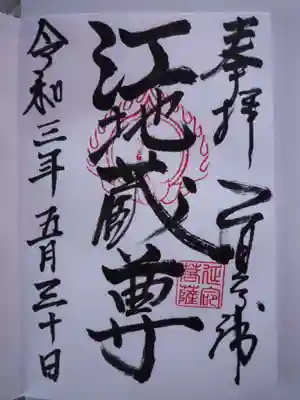 奉拝
江地蔵尊
延命
菩薩
令和三年 五月三十日